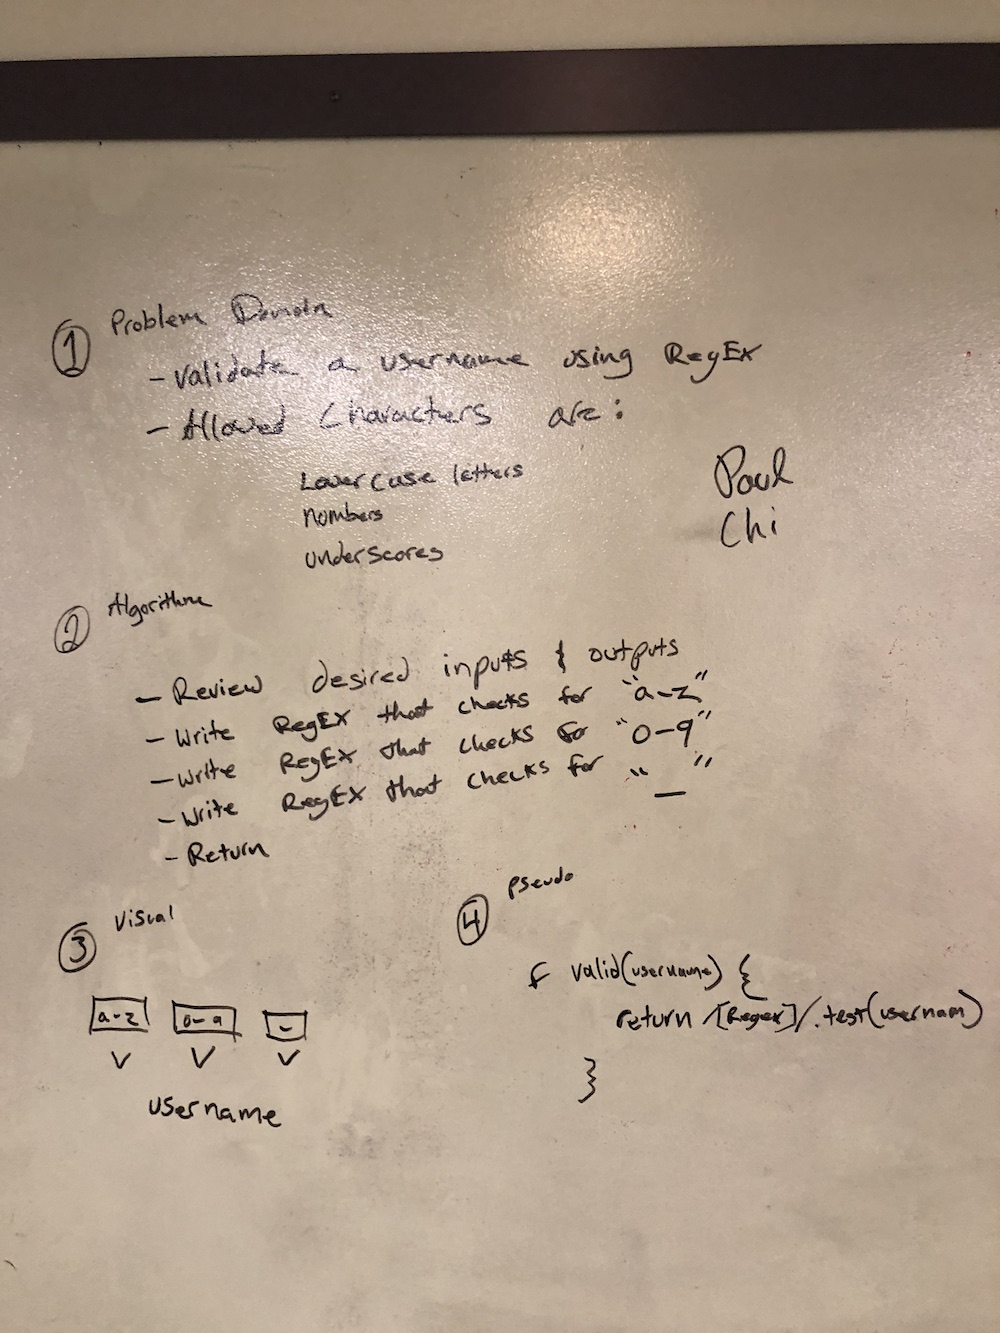 ① Problem Domain
- Validate a username using RegEx
- Allowed Characters are:
Lowercase letters
numbers
underscores
Paul
Chi
② Algorithm
- Review desired inputs & outputs
- Write RegEx that checks for "a-z"
- Write RegEx that checks for "0-9"
- Write RegEx that checks for "_"
- Return
③ Visual
a-z 0-9 _
V V V
username
④ pseudo
f valid(username) {
return /[Regex]/.test(usernam)
}